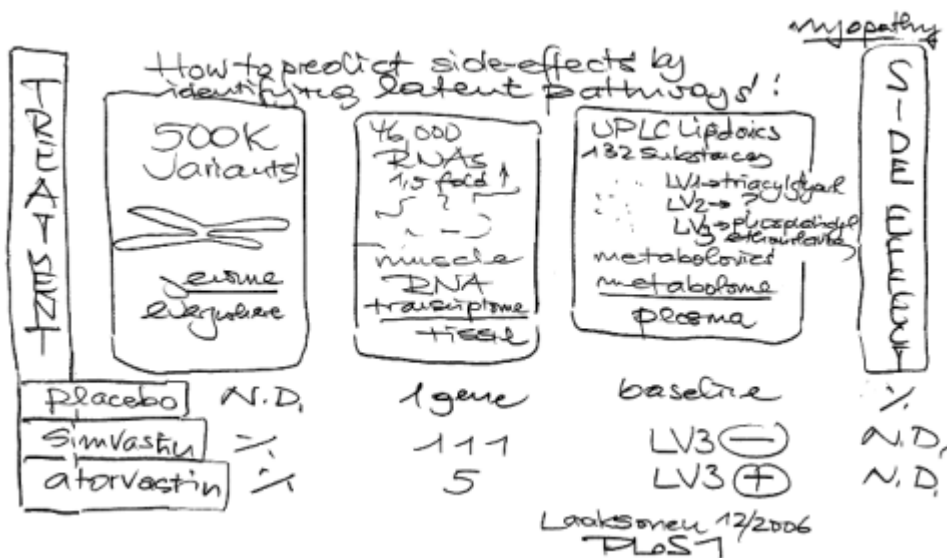 myopathy
How to predict side-effects by
identifying latent pathways:
TREATMENT
500K
Variants
genome
everywhere
46,000
RNAs
1,5 fold ↑
muscle
RNA
transcriptome
tissue
UPLC Lipdoics
132 Substances
LV1→triacylglycerol
LV2→ ?
LV3→phosphatidyl
ethanolamine
metabolomics
metabolome
plasma
SIDE EFFECT
placebo N.D. 1 gene baseline %
Simvastin % 111 LV3 − N.D.
atorvastin % 5 LV3 + N.D.
Laaksonen 12/2006
PLoS1